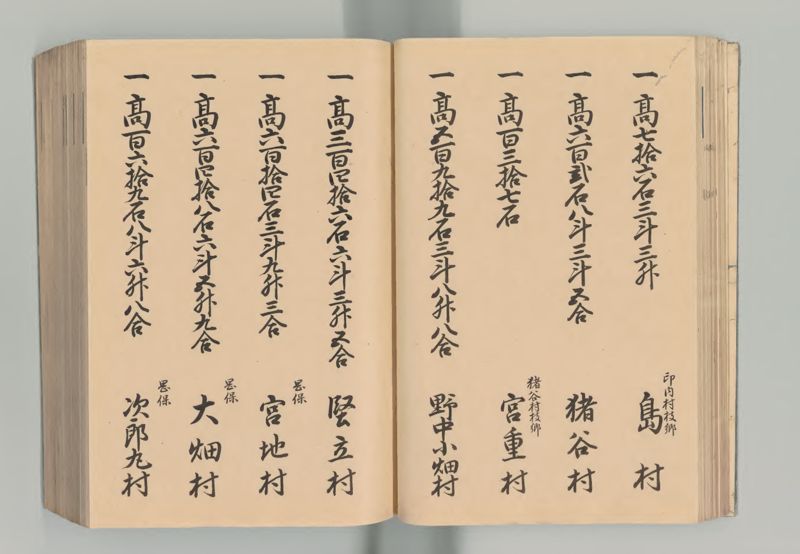 一 高七拾六石三斗三升
印内村枝郷
島村
一 高六百弐石八斗三斗五合
猪谷村
一 高百三拾七石
猪谷村枝郷
宮重村
一 高五百九拾九石三斗八升八合
野中小畑村
一 高三百四拾六石六斗三升五合
堅立村
一 高六百拾四石三斗九升三合
宮地村
一 高六百四拾八石六斗五升九合
大畑村
一 高百六拾九石八斗六升八合
次郎丸村